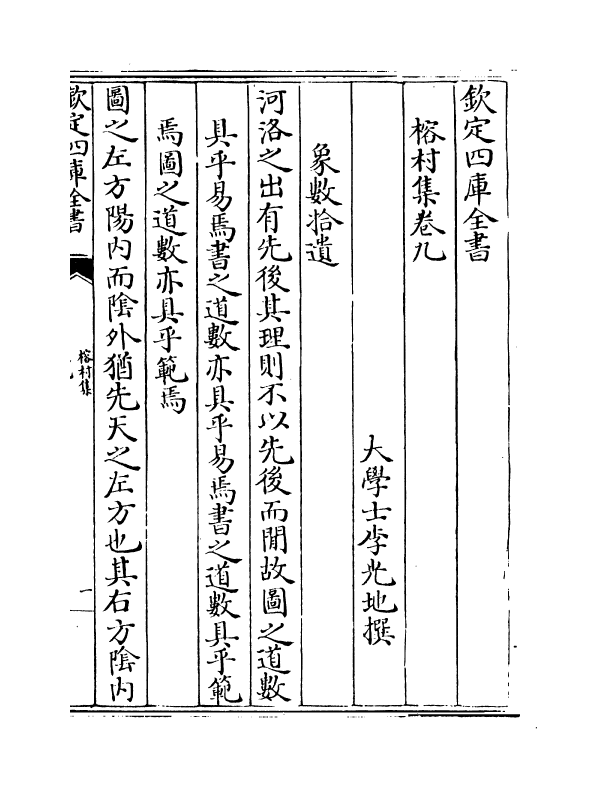 欽定四庫全書
榕村集卷九
大學士李光地撰
象數拾遺
河洛之出有先後其理則不以先後而閒故圖之道數
具乎易焉書之道數亦具乎易焉書之道數具乎範
焉圖之道數亦具乎範焉
圖之左方陽內而陰外猶先天之左方也其右方陰內
欽定四庫全書
榕村集
一